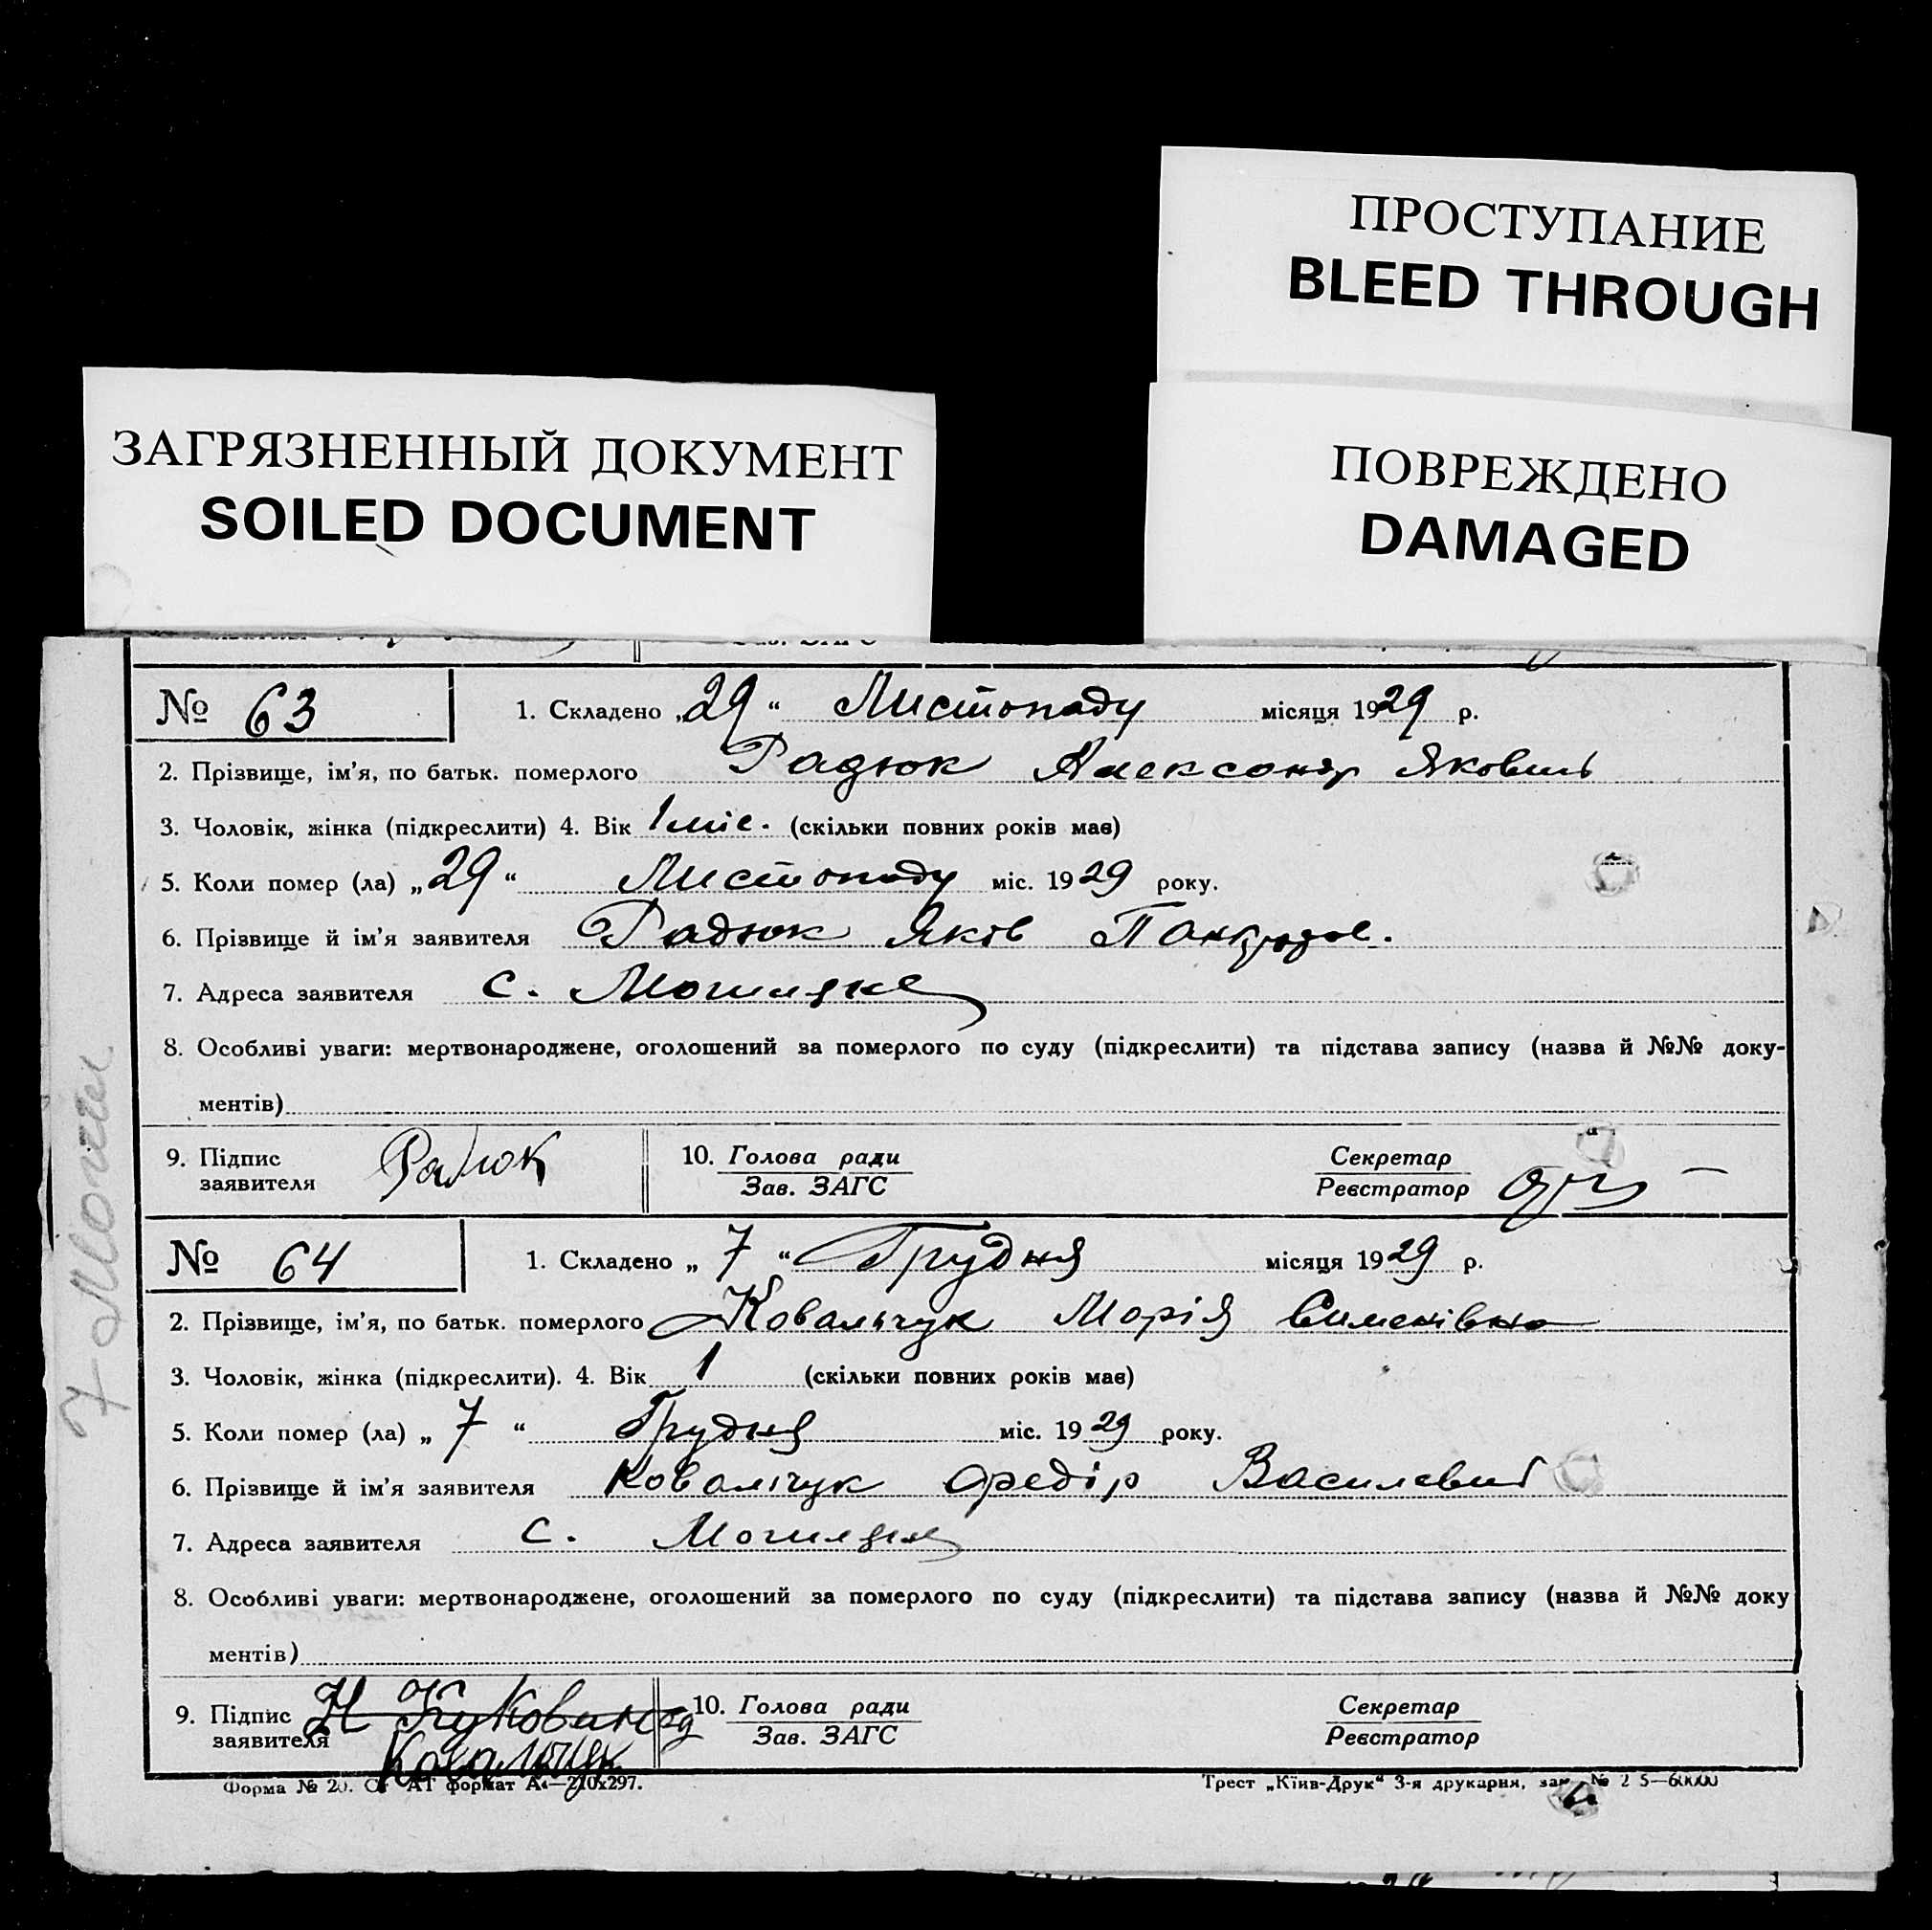 ПРОСТУПАНИЕ
BLEED THROUGH
ЗАГРЯЗНЕННЫЙ ДОКУМЕНТ
SOILED DOCUMENT
ПОВРЕЖДЕНО
DAMAGED
№ 63 1. Складено „29“ Листопаду місяця 1929 р.
2. Прізвище, ім'я, по батьк. померлого Радюк Александр Яковит
3. Чоловік, жінка (підкреслити) 4. Вік 1 міс. (скільки повних років має)
5. Коли помер (ла) „29“ Листопаду міс. 1929 року.
6. Прізвище й ім'я заявителя Радюк Яків
7. Адреса заявителя с.
8. Особливі уваги: мертвонароджене, оголошений за померлого по суду (підкреслити) та підстава запису (назва й №№ доку-
ментів)
9. Підпис заявителя Радюк 10. Голова ради Зав. ЗАГС Секретар Реєстратор
№ 64 1. Складено „7“ Грудня місяця 1929 р.
2. Прізвище, ім'я, по батьк. померлого Ковальчук Марія Сименівна
3. Чоловік, жінка (підкреслити). 4. Вік 1 (скільки повних років має)
5. Коли помер (ла) „7“ Грудня міс. 1929 року.
6. Прізвище й ім'я заявителя Ковальчук Федір Василевич
7. Адреса заявителя с.
8. Особливі уваги: мертвонароджене, оголошений за померлого по суду (підкреслити) та підстава запису (назва й №№ доку
ментів)
9. Підпис заявителя Ковальчук 10. Голова ради Зав. ЗАГС Секретар Реєстратор
Форма № 20. формат А4—210х297. Трест „Київ-Друк“ 3-я друкарня, зам. №
7 Могил